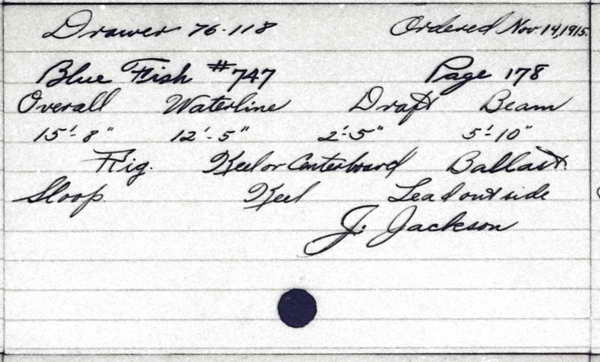 Drawer 76-118 Ordered Nov. 14, 1915.
Blue Fish #747 Page 178
Overall Waterline Draft Beam
15'-8" 12'-5" 2'-5" 5'-10"
Rig. Keel or Centerboard Ballast
Sloop Keel Lead outside
J. Jackson